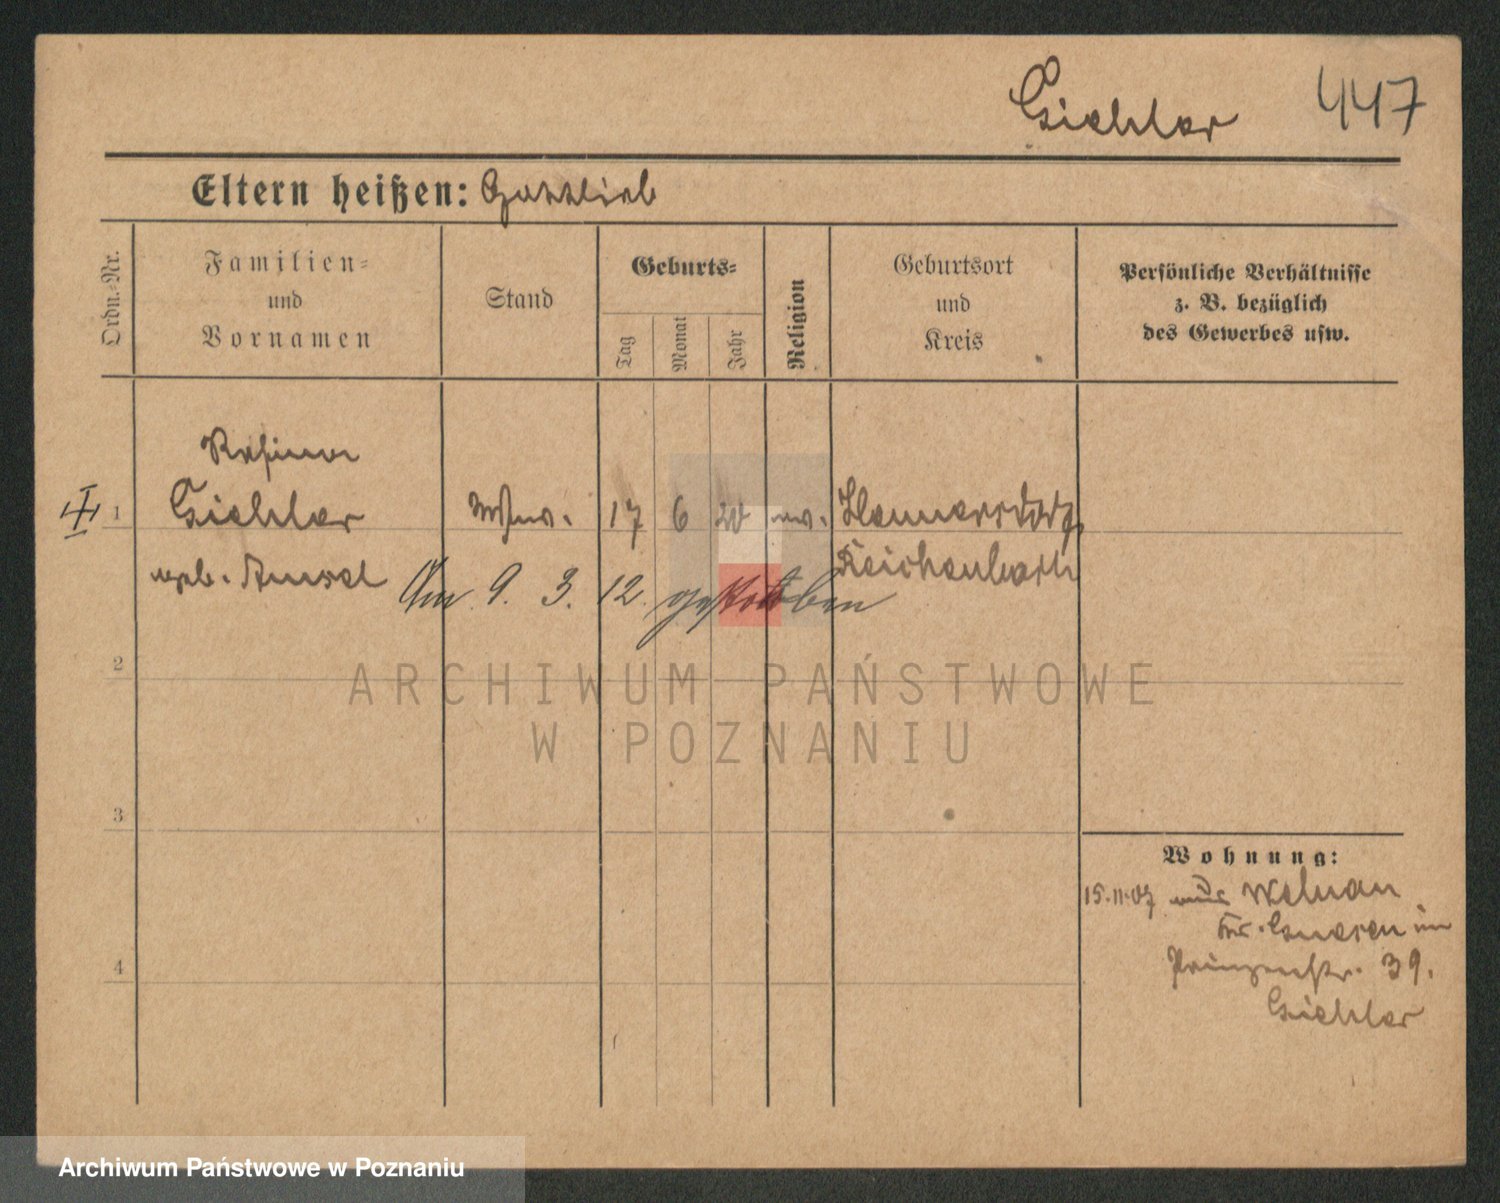 447
Eichler
Eltern heißen: Gottlieb
Ordn.-Nr.
Familien-
und
Vornamen
Stand
Geburts-
Tag
Monat
Jahr
Religion
Geburtsort
und
Kreis
Persönliche Verhältnisse
z. B. bezüglich
des Gewerbes usw.
1
Eichler
Wwe.
17
6
20
ev.
geb. Amsel
Reichenbach
Am 9. 3. 12 gestorben
2
3
4
Wohnung:
15.11.07 aus Welnau
Kr. Gnesen in
Prinzenstr. 39.
Eichler
ARCHIWUM PAŃSTWOWE
W POZNANIU
Archiwum Państwowe w Poznaniu